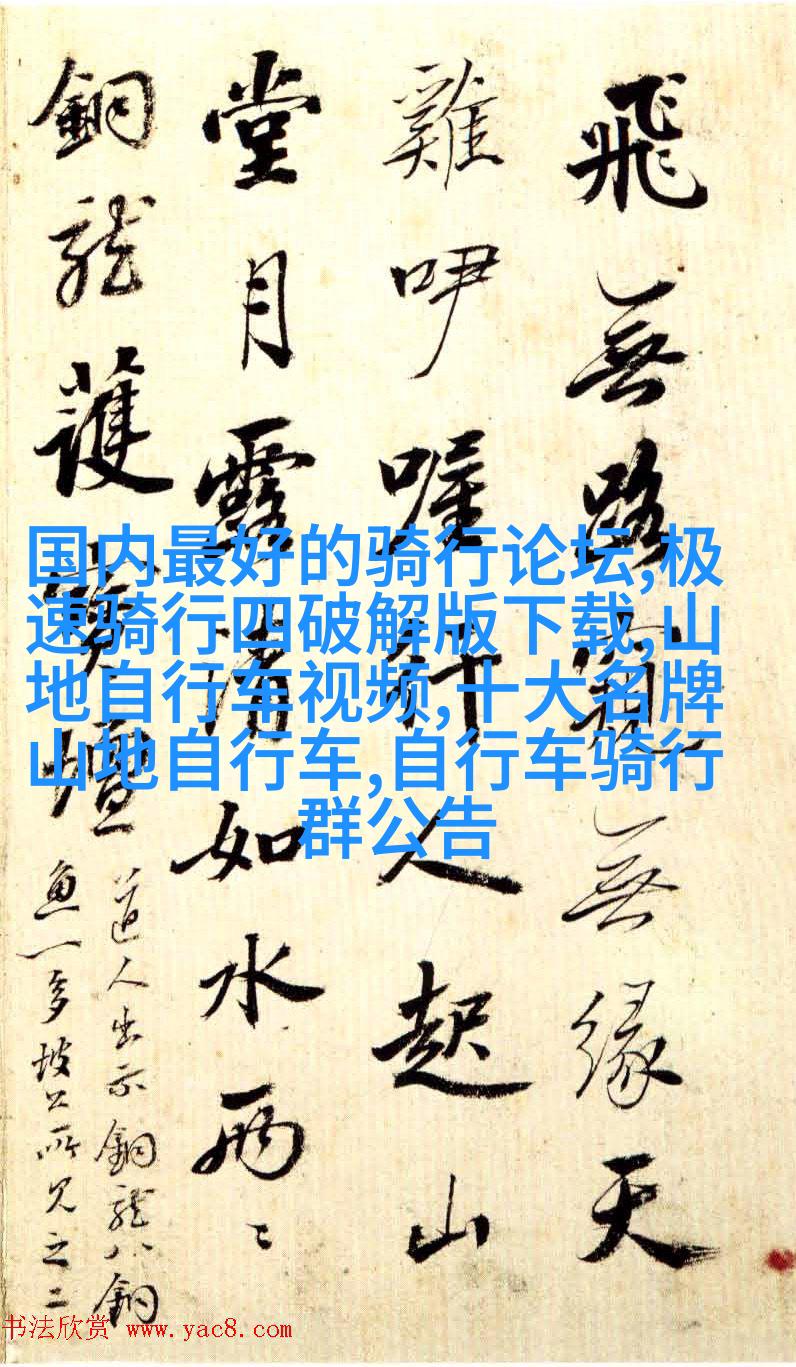 飛無路窺無緣天
雞咿喔行人起山
堂月露清如水兩〻
銅龍護寶壇
道人出示銅龍八銅
魚一多坡公所見之二
国内最好的骑行论坛,极
速骑行四破解版下载,山
地自行车视频,十大名牌
山地自行车,自行车骑行
群公告
书法欣赏 www.yac8.com